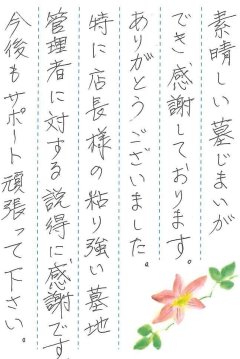 素晴しい墓じまいが
でき、感謝しております。
ありがとうございました。
特に店長様の粘り強い墓地
管理者に対する説得に感謝です。
今後もサポート頑張って下さい。